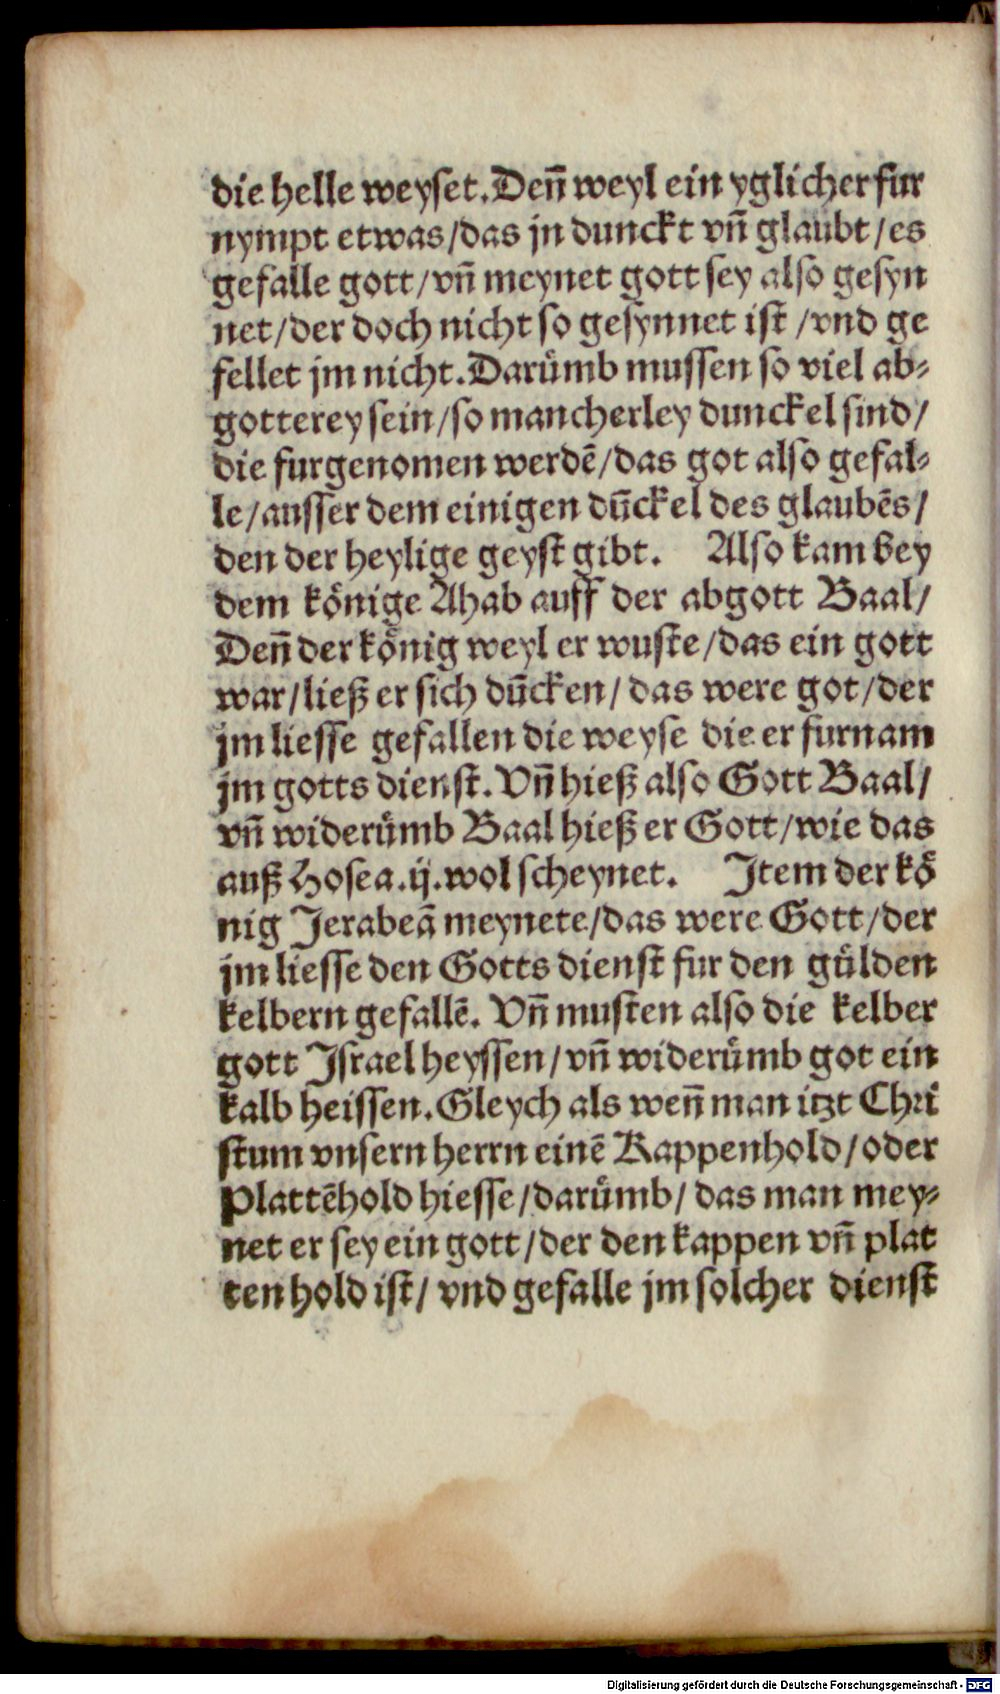 die helle weyset. Deñ weyl ein yglicher fur
nympt etwas/das jn dunckt vñ glaubt/es
gefalle gott/vñ meynet gott sey also gesyn
net/der doch nicht so gesynnet ist/vnd ge
fellet jm nicht. Darůmb mussen so viel ab⸗
gotterey sein/so mancherley dunckel sind/
die furgenomen werdẽ/das got also gefal⸗
le/ausser dem einigen dũckel des glaubẽs/
den der heylige geyst gibt. Also kam bey
dem kőnige Ahab auff der abgott Baal/
Deñ der kőnig weyl er wuste/das ein gott
war/ließ er sich dũcken/das were got/der
jm liesse gefallen die weyse die er furnam
jm gotts dienst. Vñ hieß also Gott Baal/
vñ widerůmb Baal hieß er Gott/wie das
auß Hosea.ij.wol scheynet. Item der kő
nig Jerabeã meynete/das were Gott/der
jm liesse den Gotts dienst fur den gůlden
kelbern gefallẽ. Vñ musten also die kelber
gott Israel heyssen/vñ widerůmb got ein
kalb heissen. Gleych als weñ man itzt Chri
stum vnsern herrn einẽ Kappenhold/oder
Plattẽhold hiesse/darůmb/das man mey⸗
net er sey ein gott/der den kappen vñ plat
ten hold ist/vnd gefalle jm solcher dienst
Digitalisierung gefördert durch die Deutsche Forschungsgemeinschaft - DFG